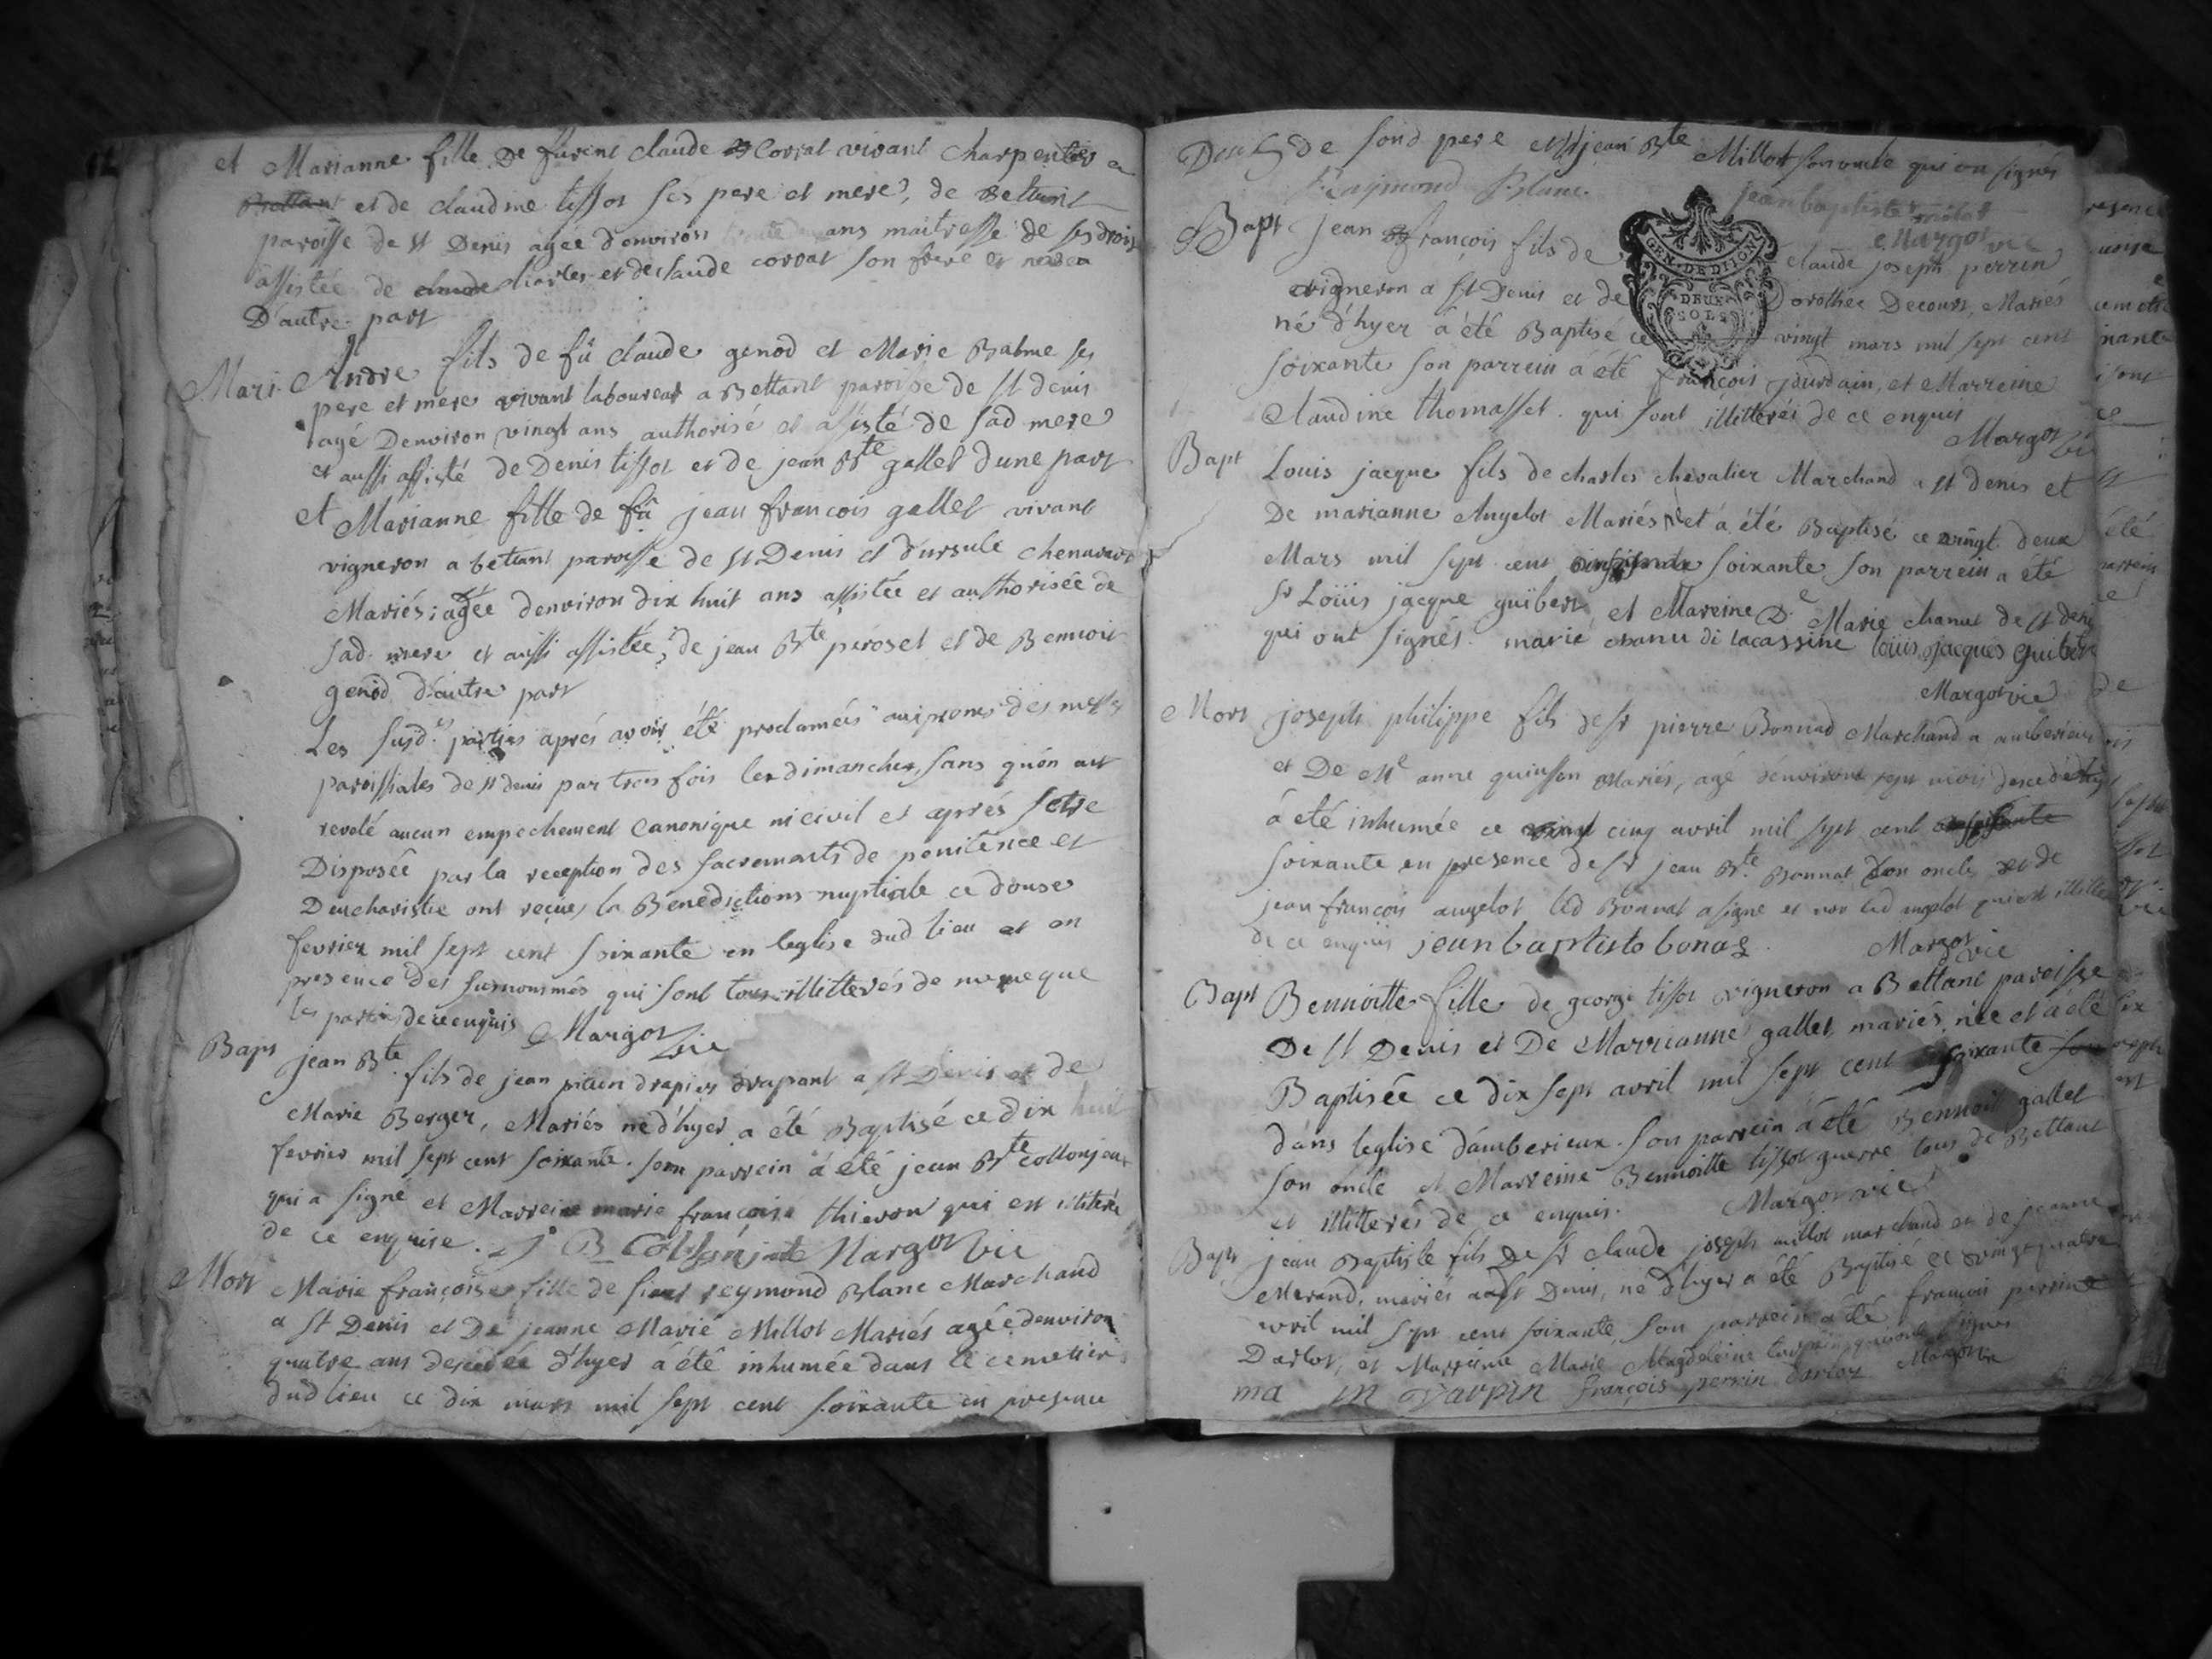 et Marianne fille De furent claude Corrat vivant charpentier a
Bettant et de claudine tissot ses pere et mere, de Bettant
paroisse de st Denis agée d'environ ans maitresse de ses droits
assistée de claude charles et de claude corrat son frere et
D'autre part
Mari Andre fils de fû claude genod et Marie Balme ses
pere et mere vivant laboureur a Bettant paroisse de st denis
agé Denviron vingt ans authorisé et assisté de sad mere
et aussi assisté de Denis tissot et de jean Bte gallet dune part
et Marianne fille de fû jean francois gallet vivant
vigneron a bettant paroisse de st Denis et d'ursule chenavard
Mariés; agée denviron dix huit ans assistée et authorisée de
sad mere et aussi assistée, de jean Bte peroset et de Bennoit
genod d'autre part
Les susd. parties aprés avoir été proclamées aux prones des messes
paroissiales de st denis par trois fois les dimanches, sans qu'on ait
revelé aucun empechement Canonique ni civil et aprés setre
Disposée par la reception des sacrements de penitence et
Deucharistie ont reçues la Benedictions nuptiale ce douse
fevrier mil sept cent soixante en leglise dud lieu et en
presence des susnommés qui sont tous illitterés de meme que
les parties de ce enquis Margot vic
Bapt jean Bte fils de jean drapier drapant a st Denis et de
Marie Berger, Mariés né d'hyer a été Baptisé ce dix huit
fevrier mil sept cent soixante. son parrein a été jean Bte collonjeat
qui a signé et Marreine marie françoise thievon qui est illiteré
de ce enquise. J B Collonjat Margot vic
Mort Marie françoise fille de sieur reymond Blanc Marchand
a st Denis et De jeanne Marie Millot Mariés agée denviron
quatre ans decedée d'hyer a été inhumée dans le cemetiere
dud lieu ce dix mars mil sept cent soixante en presence
De de sond pere et st jean Bte Millot son oncle qui on signés
Raymond Blanc. jean baptiste milot
Margot vic
Bapt jean françois fils de claude joseph perrin
vigneron a st Denis et de Dorothee Decourt, Mariés
né d'hyer a été Baptisé ce vingt mars mil sept cent
soixante son parrein a été françois jourdain, et Marreine
Claudine thomasset. qui sont illitterés de ce enquis
Margot vic
GEN. DE DIJON
DEUX
SOLS
Bapt Louis jacque fils de charles chevalier Marchand a st denis et
De marianne Angelot Mariés et a été Baptisé ce vingt deux
Mars mil sept cent soixante son parrein a été
sr Loüis jacque guibert et Mareine De Marie chanut de st denis
qui ont signés. marie chanu di lacassine loüis jacques guibert
Margot vic
Mort joseph philippe fils de sr pierre Bonnad Marchand a amberieux
et De Me anne quinson Mariés, agé d'environ sept mois decedé d'hyer
a été inhumée ce vingt cinq avril mil sept cent
soixante en presence de sr jean Bte Bonnat son oncle et de
jean françois angelot led Bonnat a signé et non led angelot qui est illitteré
de ce enquis jean baptiste bonaz Margot vic
Bapt Bennoitte fille de george tissot vigneron a Bettant paroisse
De st Denis et De Marrianne gallet mariés, née et a été
Baptisée ce dix sept avril mil sept cent soixante son
dans leglise d'amberieux. son parrein a été Bennoit gallet
son oncle et Marreine Bennoitte tissot guerre tous de Bettant
et illitterés de ce enquis. Margot vic
Bapt jean Baptiste fils De sr claude joseph millot marchand et de jeanne
Merand, mariés a st Denis, né d'hyer a été Baptisé ce vingt quatre
avril mil sept cent soixante, son parrein a été francois perrin
Darlot, et Marreine Marie Magdeleine tarpin qui ont signés
ma m Tarpin françois perrin darloz Margot vic